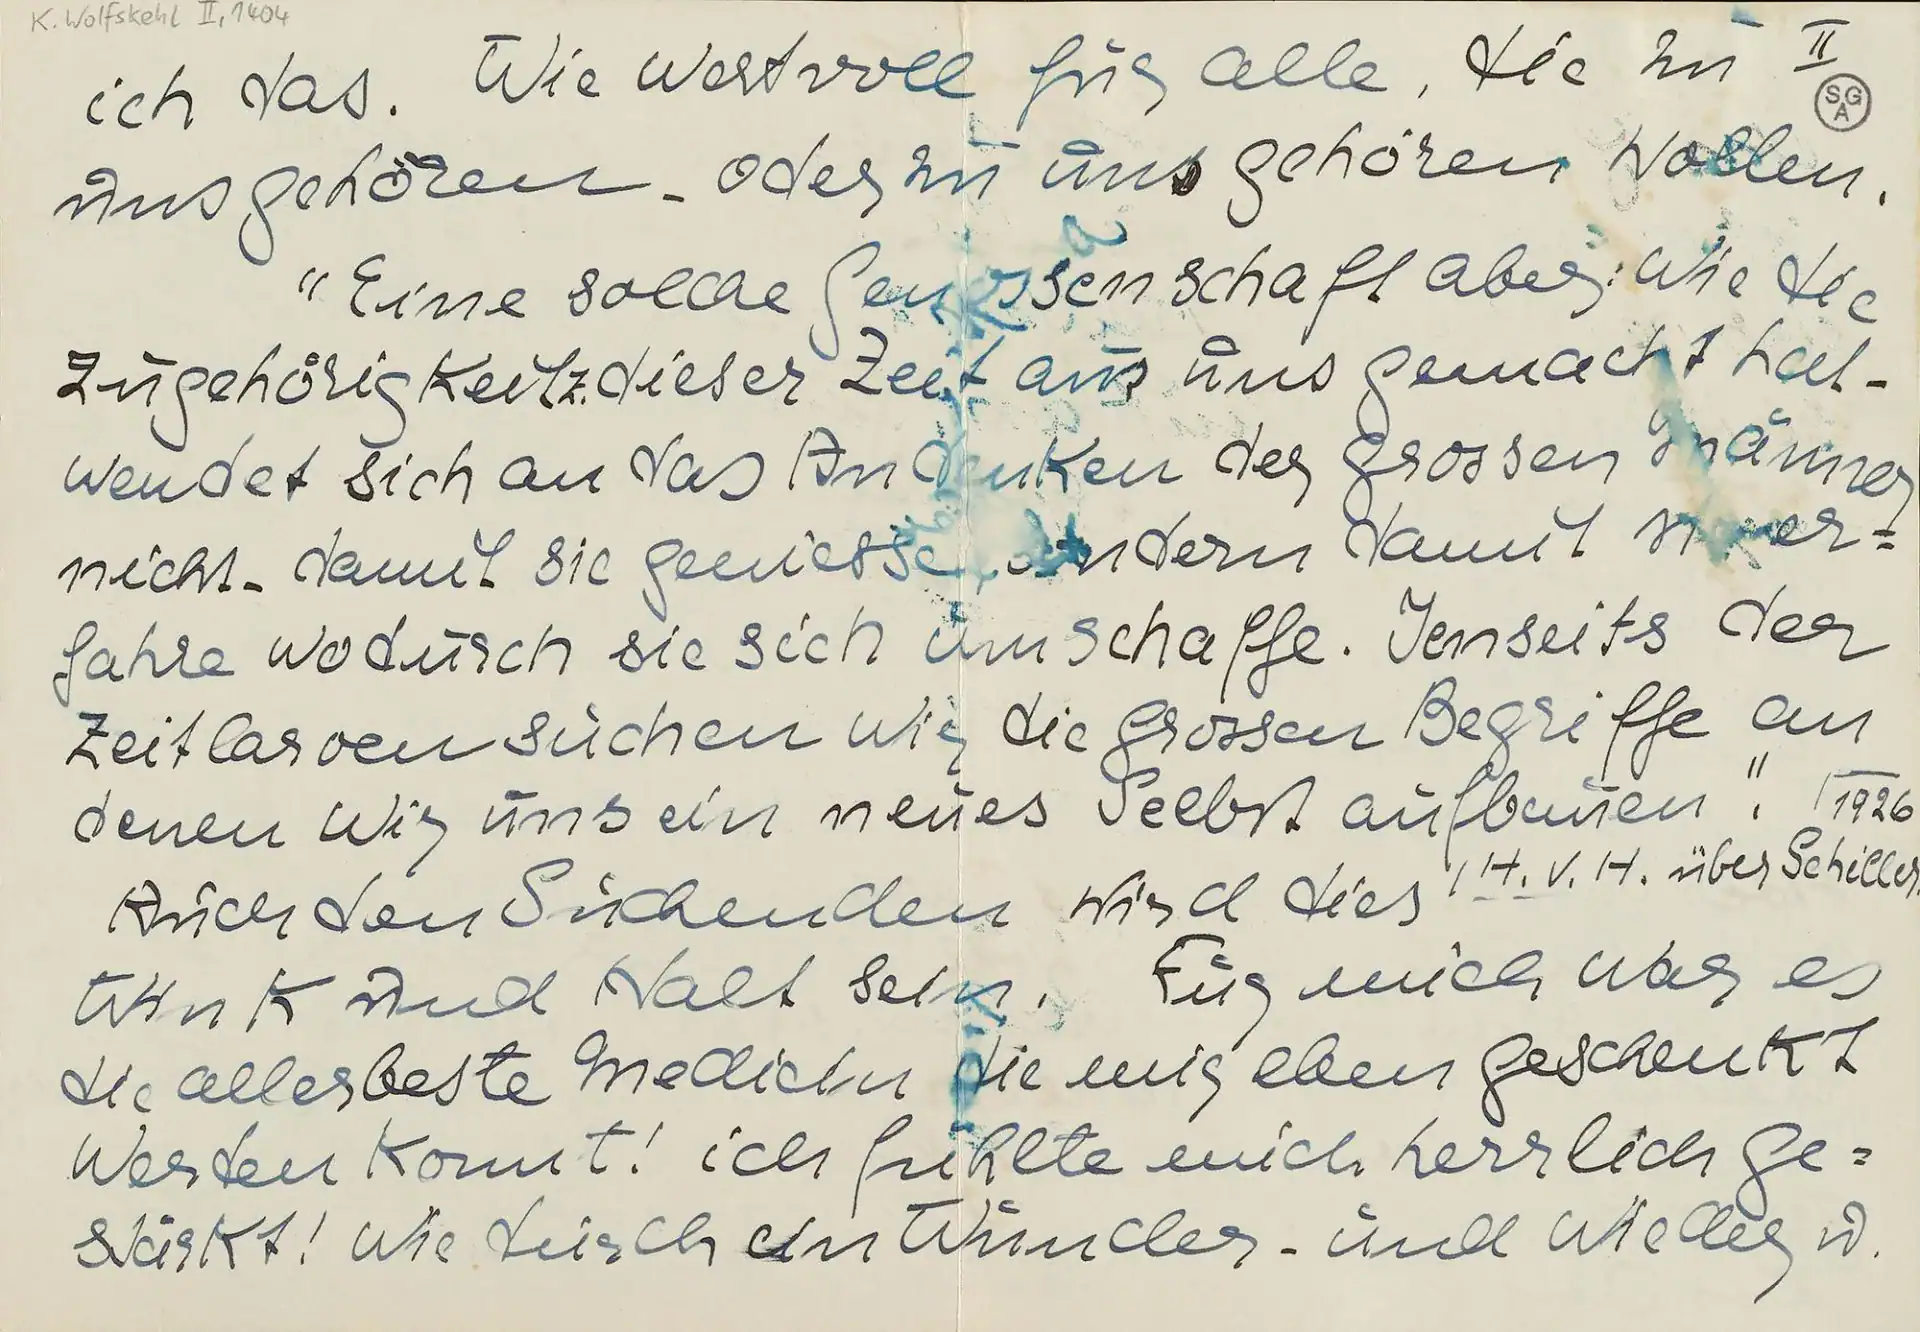 K. Wolfskehl II, 1404
II
SGA
ich das. Wie wertvoll für alle, die zu
uns gehören - oder zu uns gehören wollen.
"Eine solche Genossenschaft aber: wie die
Zugehörigkeit z. dieser Zeit aus uns gemacht hat -
wendet sich an das Andenken der grossen Männer
nicht - damit sie geniesse sondern damit sie er=
fahre wodurch sie sich umschaffe. Jenseits der
Zeitlarven suchen wir die grossen Begriffe an
denen wir uns ein neues Selbst aufbauen". 1926
H. v. H. über Schiller
Auch den Suchenden wird dies
Wink und Halt sein. Für mich war es
die allerbeste Medicin die mir eben geschenkt
werden konnt! ich fühlte mich herrlich ge=
stärkt! wie durch ein Wunder - und wieder u.